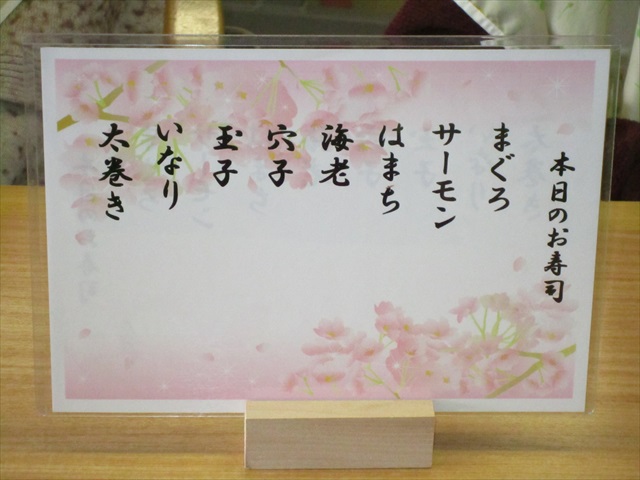 本日のお寿司
まぐろ
サーモン
はまち
海老
穴子
玉子
いなり
太巻き